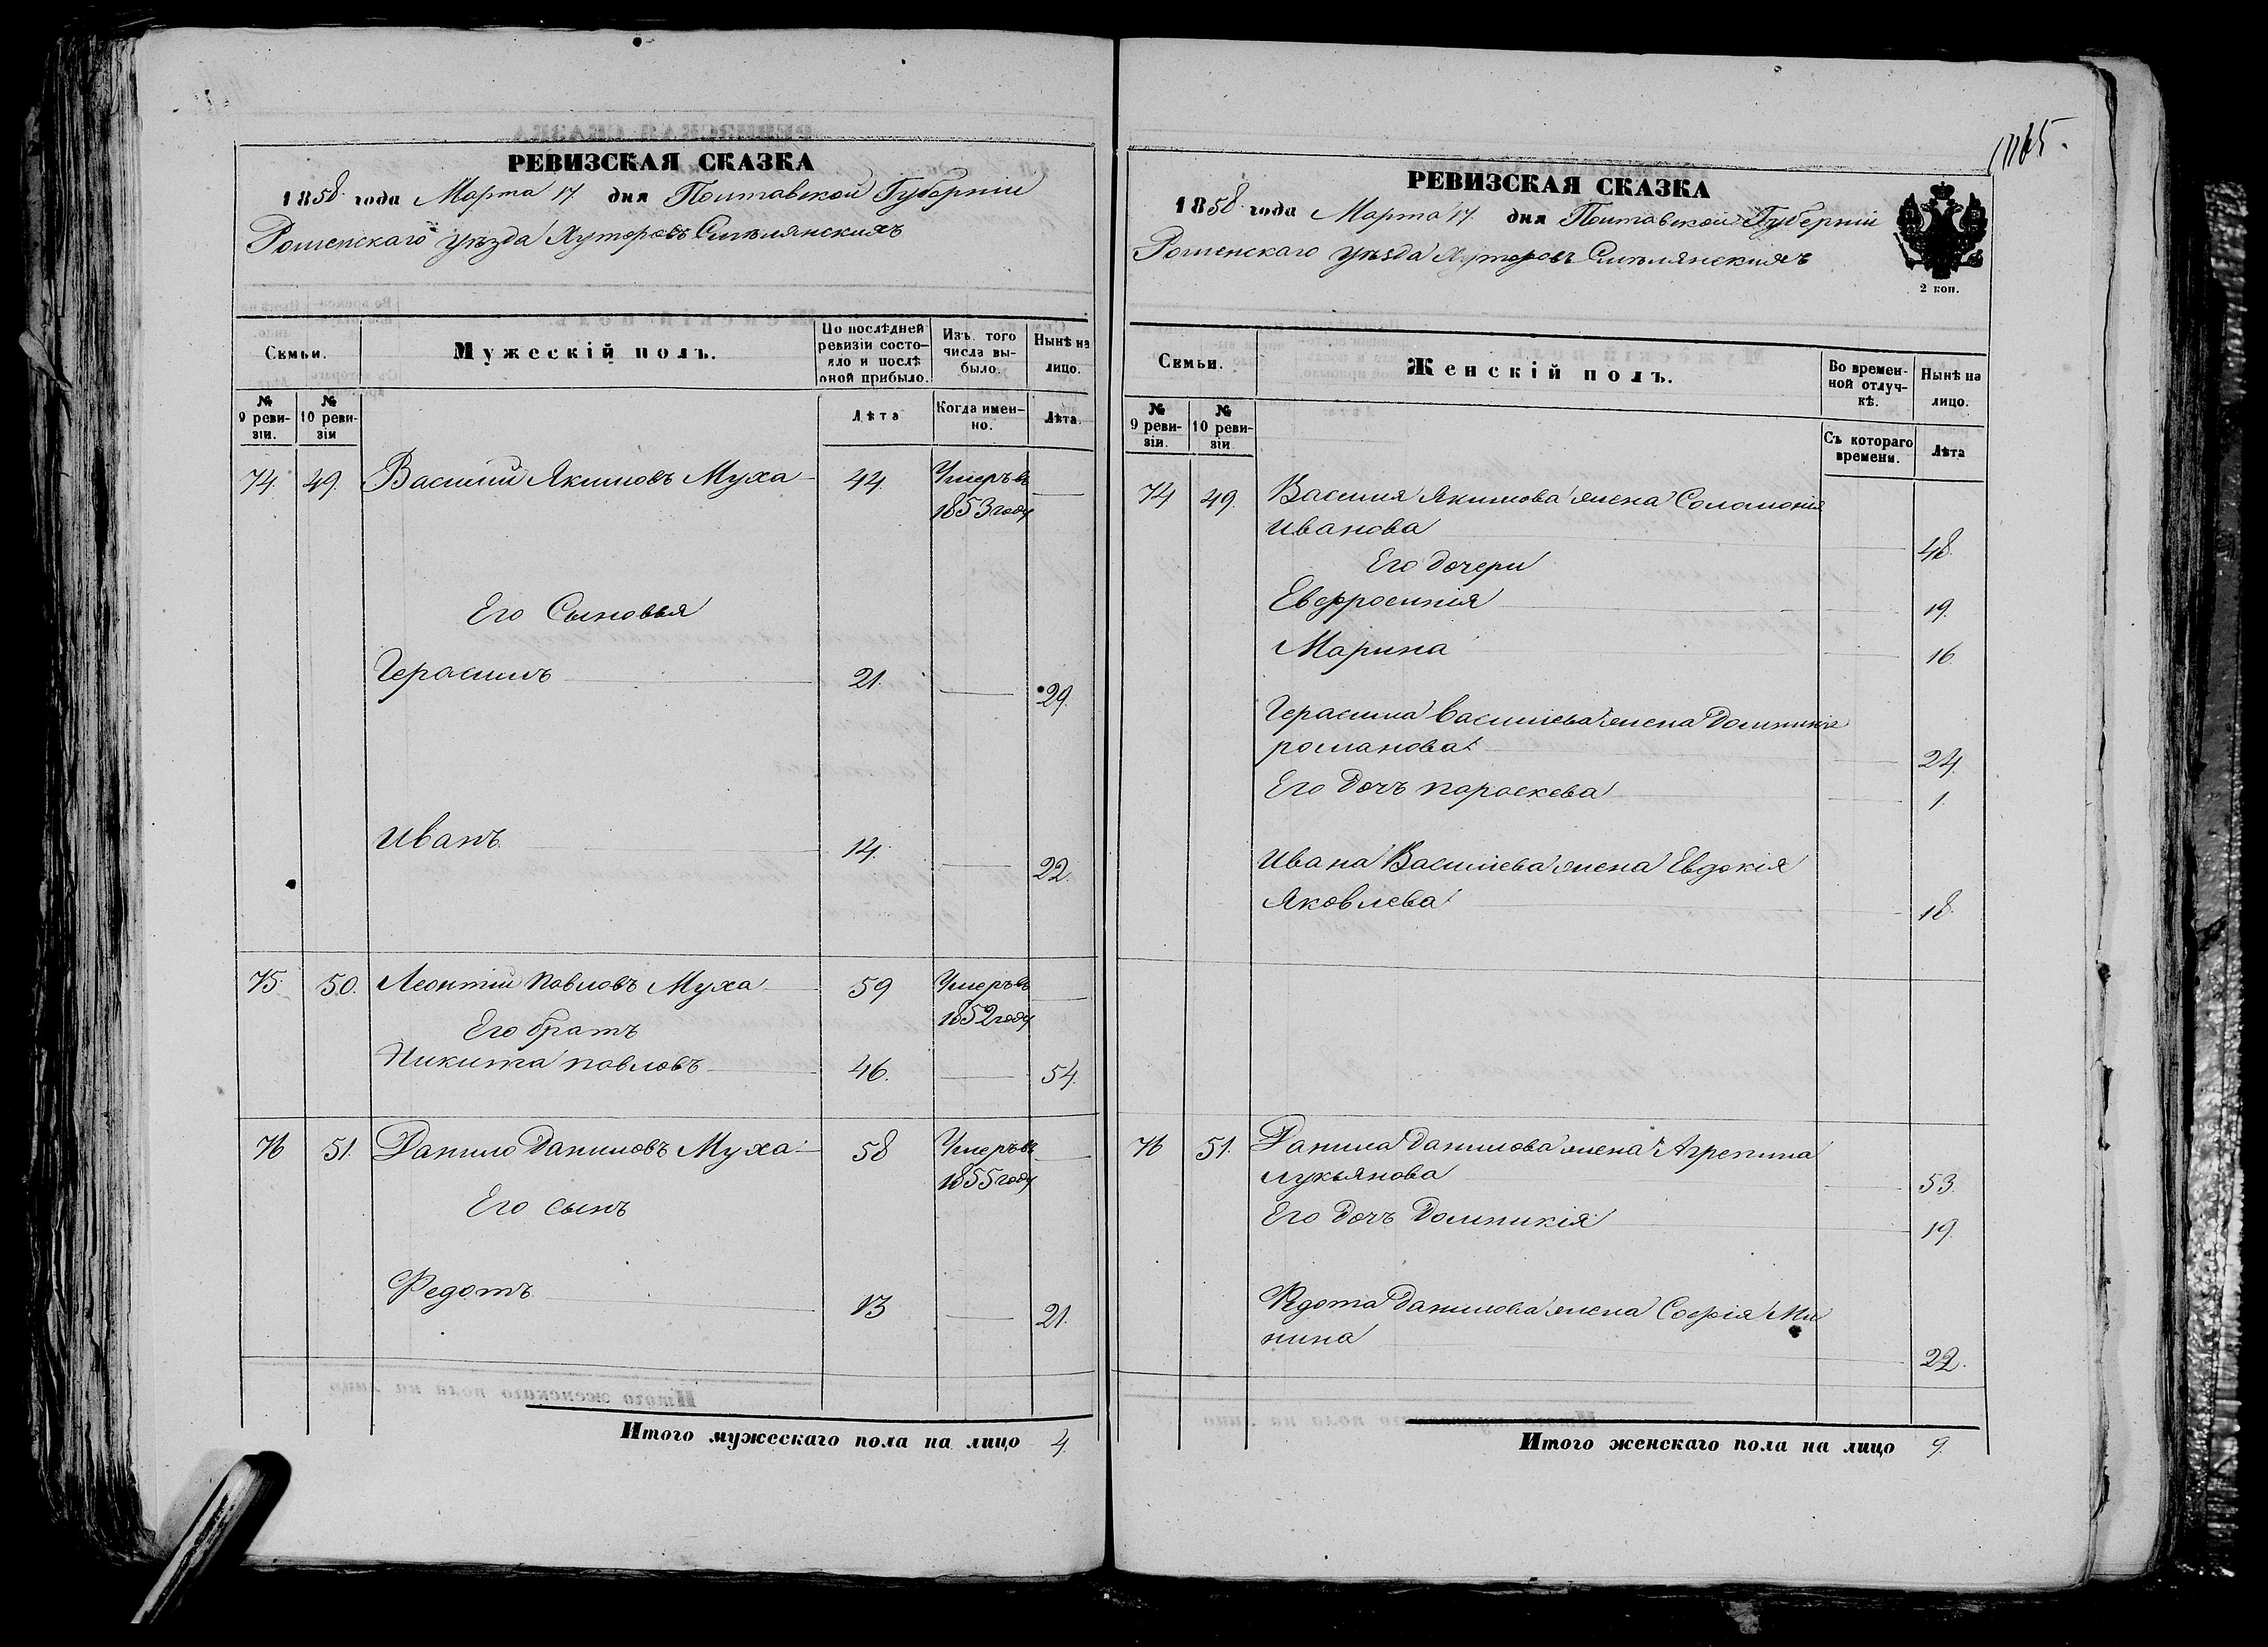 РЕВИЗСКАЯ СКАЗКА
1858 года Марта 17 дня Полтавской Губерніи
Роменскаго уѣзда Хуторовъ Смѣлянскихъ
Семьи.
Мужескій полъ.
По послѣдней ревизіи состояло и послѣ оной прибыло.
Изъ того числа выбыло.
Нынѣ на лицо.
№ 9 ревизіи.
№ 10 ревизіи
Лѣта
Когда именно.
Лѣта.
74. 49. Василій Якимовъ Муха 44. Умеръ въ
1853 году
Его Сыновья
Герасимъ 21. 29.
Иванъ 14. 22.
75. 50. Леонтій Павловъ Муха 59 Умеръ въ
1852 году
Его братъ
Никита Павловъ 46. 54.
76 51. Данило Даниловъ Муха 58 Умеръ въ
1855 году
Его сынъ
Федотъ 13 21.
Итого мужескаго пола на лицо 4.
1165.
РЕВИЗСКАЯ СКАЗКА
1858 года Марта 17 дня Полтавской Губерніи
Роменскаго уѣзда Хуторовъ Смѣлянскихъ
2 коп.
Семьи.
Женскій полъ.
Во временной отлучкѣ.
Нынѣ на лицо.
№ 9 ревизіи.
№ 10 ревизіи
Съ котораго времени.
Лѣта
74 49. Василія Якимова жена Соломонія
Иванова 48.
Его дочери
Евфросинія 19.
Марина 16.
Герасима Васильева жена Домникія
Романова 24.
Его дочь Параскева 1.
Ивана Васильева жена Евдокія
Яковлева 18.
76 51. Данила Данилова жена Агрепина
Лукьянова 53.
Его дочь Домникія 19.
Федота Данилова жена Софія Ми
нина 22.
Итого женскаго пола на лицо 9.